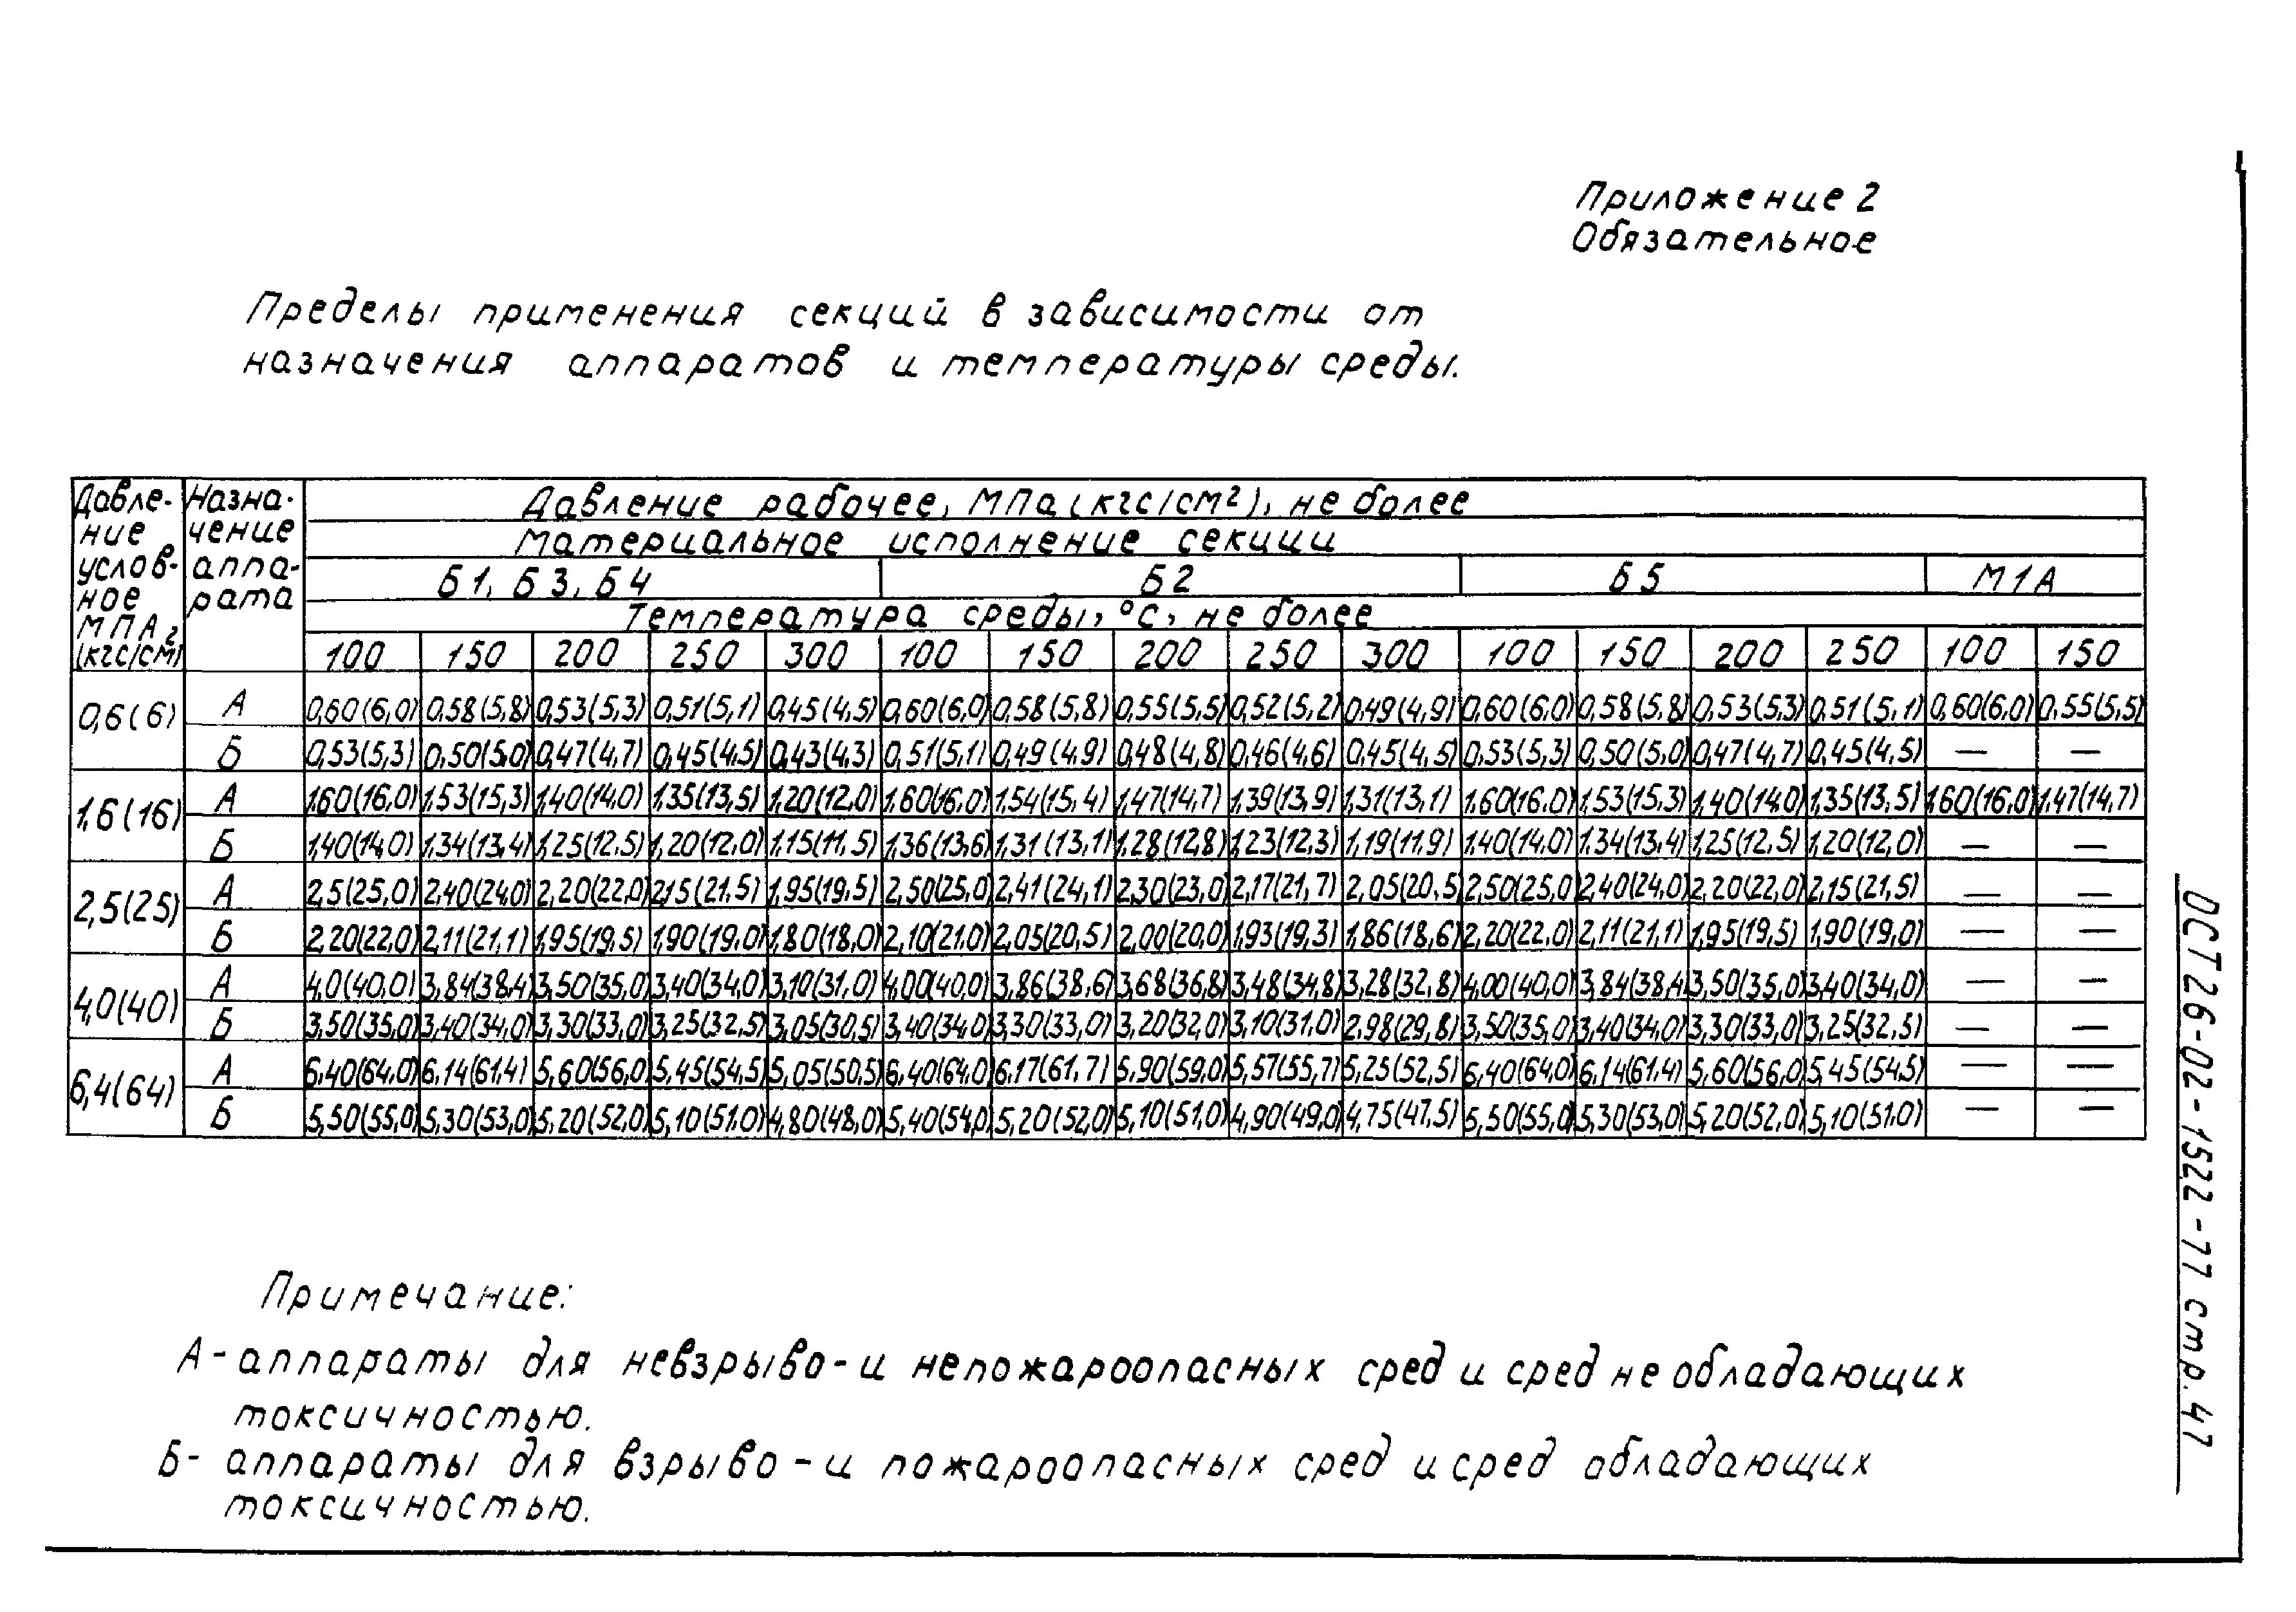 Приложение 2
Обязательное
Пределы применения секций в зависимости от
назначения аппаратов и температуры среды.
Давле- Назна- Давление рабочее, МПа (кгс/см²), не более
ние чение Материальное исполнение секции
услов- аппа- Б1, Б3, Б4 Б2 Б5 М1А
ное рата Температура среды, °С, не более
МПА
(кгс/см²) 100 150 200 250 300 100 150 200 250 300 100 150 200 250 100 150
0,6(6) А 0,60(6,0) 0,58(5,8) 0,53(5,3) 0,51(5,1) 0,45(4,5) 0,60(6,0) 0,58(5,8) 0,55(5,5) 0,52(5,2) 0,49(4,9) 0,60(6,0) 0,58(5,8) 0,53(5,3) 0,51(5,1) 0,60(6,0) 0,55(5,5)
Б 0,53(5,3) 0,50(5,0) 0,47(4,7) 0,45(4,5) 0,43(4,3) 0,51(5,1) 0,49(4,9) 0,48(4,8) 0,46(4,6) 0,45(4,5) 0,53(5,3) 0,50(5,0) 0,47(4,7) 0,45(4,5) — —
1,6(16) А 1,60(16,0) 1,53(15,3) 1,40(14,0) 1,35(13,5) 1,20(12,0) 1,60(16,0) 1,54(15,4) 1,47(14,7) 1,39(13,9) 1,31(13,1) 1,60(16,0) 1,53(15,3) 1,40(14,0) 1,35(13,5) 1,60(16,0) 1,47(14,7)
Б 1,40(14,0) 1,34(13,4) 1,25(12,5) 1,20(12,0) 1,15(11,5) 1,36(13,6) 1,31(13,1) 1,28(12,8) 1,23(12,3) 1,19(11,9) 1,40(14,0) 1,34(13,4) 1,25(12,5) 1,20(12,0) — —
2,5(25) А 2,5(25,0) 2,40(24,0) 2,20(22,0) 2,15(21,5) 1,95(19,5) 2,50(25,0) 2,41(24,1) 2,30(23,0) 2,17(21,7) 2,05(20,5 2,50(25,0) 2,40(24,0) 2,20(22,0) 2,15(21,5) — —
Б 2,20(22,0) 2,11(21,1) 1,95(19,5) 1,90(19,0) 1,80(18,0) 2,10(21,0) 2,05(20,5) 2,00(20,0) 1,93(19,3) 1,86(18,6) 2,20(22,0) 2,11(21,1) 1,95(19,5) 1,90(19,0) — —
4,0(40) А 4,0(40,0) 3,84(38,4) 3,50(35,0) 3,40(34,0) 3,10(31,0) 4,00(40,0) 3,86(38,6) 3,68(36,8) 3,48(34,8) 3,28(32,8) 4,00(40,0) 3,84(38,4) 3,50(35,0) 3,40(34,0) — —
Б 3,50(35,0) 3,40(34,0) 3,30(33,0) 3,25(32,5) 3,05(30,5) 3,40(34,0) 3,30(33,0) 3,20(32,0) 3,10(31,0) 2,98(29,8) 3,50(35,0) 3,40(34,0) 3,30(33,0) 3,25(32,5) — —
6,4(64) А 6,40(64,0) 6,14(61,4) 5,60(56,0) 5,45(54,5) 5,05(50,5) 6,40(64,0) 6,17(61,7) 5,90(59,0) 5,57(55,7) 5,25(52,5) 6,40(64,0) 6,14(61,4) 5,60(56,0) 5,45(54,5) — —
Б 5,50(55,0) 5,30(53,0) 5,20(52,0) 5,10(51,0) 4,80(48,0) 5,40(54,0) 5,20(52,0) 5,10(51,0) 4,90(49,0) 4,75(47,5) 5,50(55,0) 5,30(53,0) 5,20(52,0) 5,10(51,0) — —
Примечание:
А - аппараты для невзрыво - и непожароопасных сред и сред не обладающих
токсичностью.
Б - аппараты для взрыво - и пожароопасных сред и сред обладающих
токсичностью.
ОСТ 26-02-1522-77 стр. 47